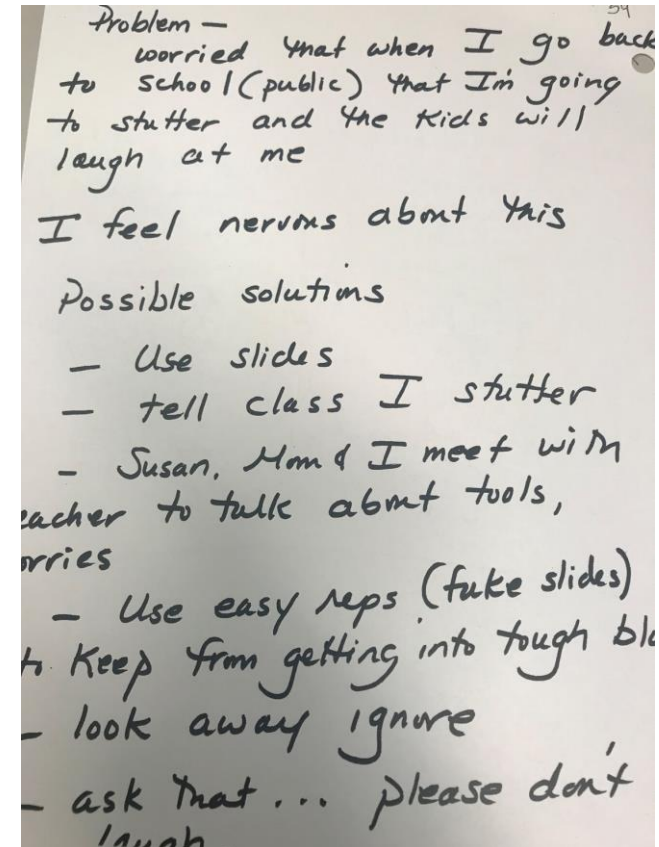 54
Problem —
worried that when I go back
to school (public) that I'm going
to stutter and the kids will
laugh at me
I feel nervous about this
Possible solutions
— Use slides
— tell class I stutter
— Susan, Mom & I meet with
eacher to talk about tools,
orries
— Use easy reps (fake slides)
to keep from getting into tough blo
— look away ignore
— ask that ... please don't
laugh